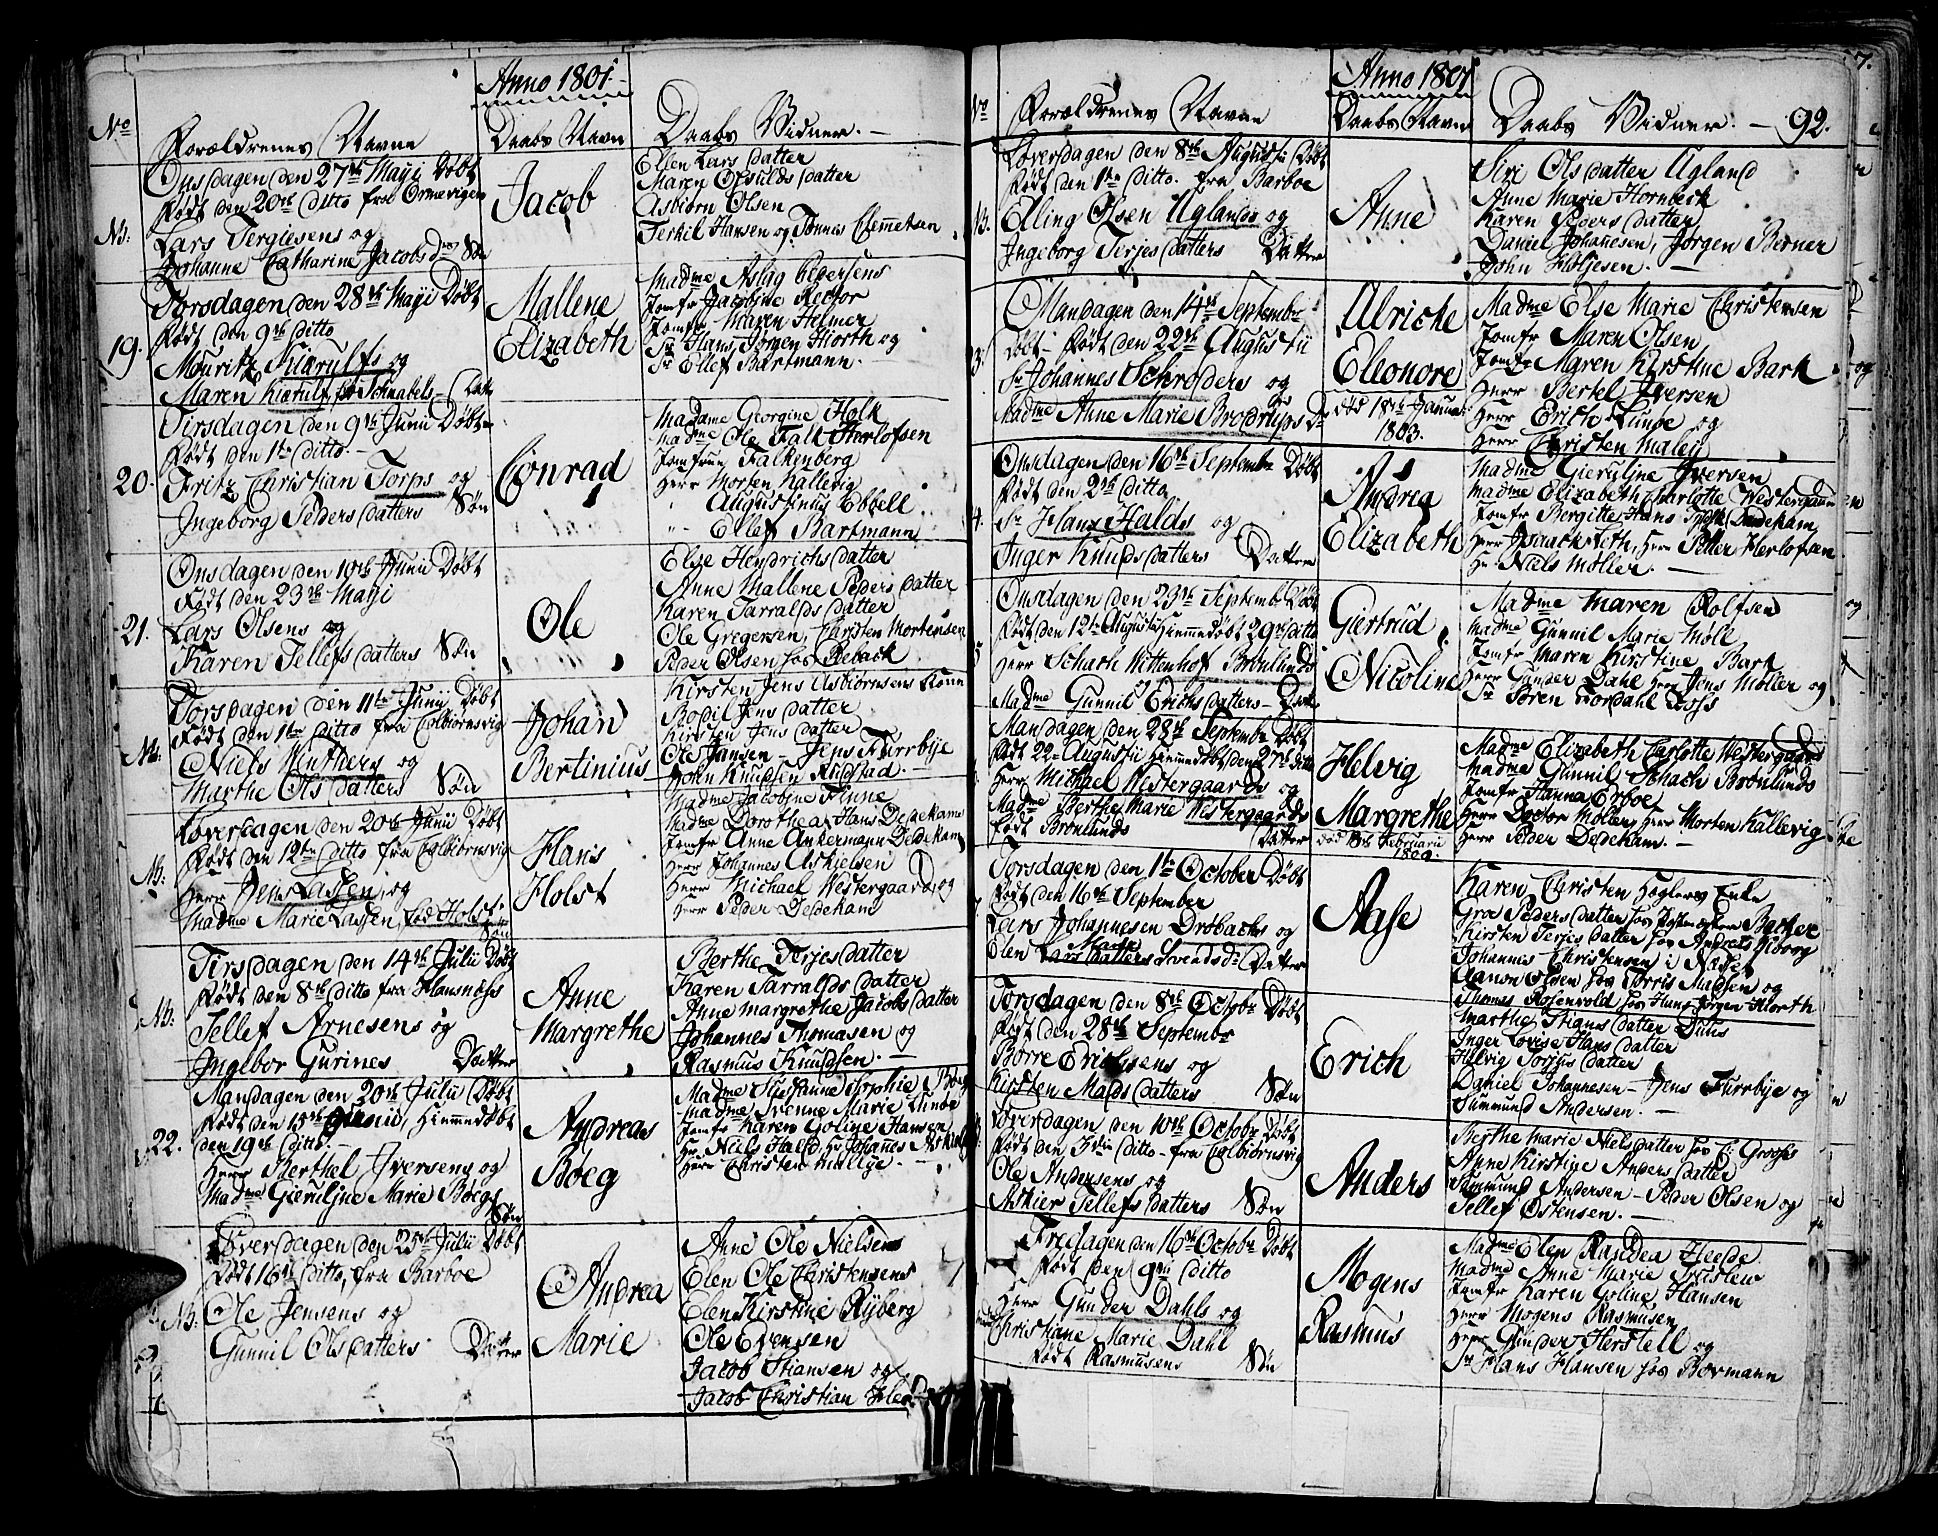 Anno 1801.
No
Forældrenes Navne
Daabs Navn
Daabs Vidner. —
Onsdagen den 27de Maji Døbt
Født den 20de ditto fra Ormevigen
NB.
Lars Tergiesens og
Johanne Catharine Jacobsdr Søn
Jacob
Ellen Lars datter
Maren Osvulds datter
Asbiørn Olsen
Terkil Hansen og Tønnes Clemmetsen
Torsdagen den 28de Maji Døbt
Født den 9de ditto
19.
Mouritz Kiærulfs og
Maren Kiærulf, Datter
Mallene
Elizabeth
Madme Aslag Pedersens
Jomfr Jacobine Rector
Jomfr Maren Helmer
Sr Hans Jørgen Hiorth og
Sr Ellef Bartmann.
Tirsdagen den 9de Junii Døbt
Født den 1te ditto. —
20.
Fritz Christian Torps og
Ingeborg Peders datters Søn
Conrad
Madame Georgine Holk
Madme Ole Falk Herlofsen
Jomfrue Falkenberg
Herr Morten Kallevig
Augustinus Ebbell
Ellef Bartmann
Onsdagen den 10de Junii Døbt
Født den 23de Maji
21.
Lars Olsens og
Karen Tellefs datters Søn
Ole
Else Hendrichs datter
Anne Mallene Peders datter
Karen Tarralds datter
Ole Gregersen, Christen Mortensen
Peder Olsen hos
Torsdagen den 11te Junii Døbt
Født den 1te ditto fra Colbiørnsvig
NB.
Niels Winthers og
Marthe Ols datters Søn
Johan
Bertinius
Kirsten Jens Asbiørnsens Kone
Bodil Jens datter
Kirsten Jens datter
Ole Jansen — Jens Furrbye
John Knudsen Rustad. —
Løverdagen den 20de Junii Døbt
Født den 12te ditto fra Colbiørnsvig
NB.
Herr Jens Lassen, og
Madme Marie Lassen, fød Holst.
Søn
Hans
Holst
Madme Jacobine Finne
Madme Dorothea Hans Dedekam
Jomfr Anne Ankermann Dedekam
Herr Johannes Askielsen
Herr Michael Westergaard, og
Herr Peder Dedekam
Tirsdagen den 14de Julii Døbt
Født den 8de ditto fra Hansnæss
NB.
Tellef Arnesens og
Ingebor Gurines Datter
Anne
Margrethe
Berthe Terjes datter
Karen Tarralds datter
Anne Margrethe Jacobs datter
Johannes Thomasen og
Rasmus Knudsen. —
Mandagen den 20de Julii Døbt
Født den 15de Junii, Hiemmedøbt
22.
den 19de ditto. —
Herr Berthel Iversens og
Madme Gieruline Marie Bøegs
Søn
Andreas
Bøeg
Madme Susanne Sophie Bøeg
Madme Svenne Marie Lunde
Jomfr Karen Goline Hansen
Hr Niels Hald, Hr Johannes Askiels
Herr Christen Mallye. —
Løverdagen den 25de Julii Døbt
Født 16de ditto, fra Barboe
NB.
Ole Jensens og
Gunnil Ols datters Datter
Andrea
Marie
Anne Ole Nielsens
Elen Ole Christensens
Elen Kirstine Ryberg
Ole Evensen
Jacob Stiansen og
Jacob Christian
Anno 1801
No
Forældrenes Navne
Daabs Navne
Daabs Vidner. — 92.
Løverdagen den 8de Augustii Døbt
Født den 1te ditto. fra Barboe
Elling Olsen Uglands og
Ingeborg Terjes datters Datter
Anne
Siri Ols datter Ugland
Anne Marie Hornbeck
Karen Peders datter
Daniel Johannesen, Jørgen Berner
John Holjesen. —
Mandagen den 14de Septembr
Døbt — Født den 22de Augustii
Sr Johannes Schrøders og
Madme Anne Marie Brodtrups Dr
Ulriche
Eleonore
død 18de Januar
1803.
Madme Else Marie Christensen
Jomfr Maren Olsen
Jomfr Maren Kirstine Bark
Herr Bertel Iversen
Herr Erich Lunde og
Herr Christen Maley
Onsdagen den 16de Septembr Døbt
Født den 2de ditto
4.
Sr Hans Halds og
Inger Knuds datters Datter
Andrea
Elizabeth
Madme Gieruline Iversen
Madme Elizabeth Charlotte Westergaard
Jomfr Bergitte Hans Dedekam
Herr Isaach, Herr Petter Herlofsen
Hr Niels Møller. —
Onsdagen den 23de Septembr Døbt
Født den 12te Augusti, Hiemmedøbt 29de ditto
Herr Schach Wittenhof Brønlunds
og
Madme Gunnil Erichs datters — Datter
Giertrud
Nicoline
Madme Maren Rolfsen
Madme Gunnil Marie Møle
Jomfr Maren Kirstine Bark
Herr Gunder Dahl Herr Jens Møller og
Sr Søren
Mandagen den 28de Septembr Døbt
Født 22 Augustii Hiemmedøbt den 27de ditto
Herr Michael Westergaards og
Madme Berthe Marie Westergaards
født Brønlunds Datter
Helvig
Margrethe
død Februarii
Madme Elizabeth Carlotte Westergaard
Madme Gunnil Schach Brønlunds
Jomfr Hanna Erboe
Herr Doctor Møller, Herr Morten Kallevig
Herr Peder Dedekam. —
Torsdagen den 1te October Døbt
Født den 16de September
Lars Johannesen Drøbachs og
Elen Lars datters Svendsdr Datter
Aase
Karen Christen Heglers Enke
Groe Peders datter hos
Kirsten Terjes datter hos Andreas
Johannes Christensen i Næset
Aanon Olsen hos Torris Madsen og
Thomas Rosenvold hos Hans Jørgen Hiorth
Torsdagen den 8de Octobr Døbt
Født den 28de Septembr
Børre Erichsens og
Kirsten Mads datters Søn
Erich
Marthe Stians datter
Inger Lovise Hans datter
Helvig Torjus datter
Daniel Johannesen — Jens Furrbye og
Summund Andersen. —
Løverdagen den 10de Octobr Døbt
Født den 3die ditto — fra Colbiørnsvig
Ole Andersens og
Askier Tellefs datters Søn
Anders
Berthe Marie Niels datter hos
Anne Kirstine Anders datter
Summund Andersen — Peder Olsen og
Tellef Østensen. —
Fredagen den 16de Octobr Døbt
Født den 9de ditto
Herr Gunder Dahls og
Christiane Marie Dahl
Født Rasmusens Søn
Mogens
Rasmus
Madme Elen Randea
Madme Anne Marie
Jomfr Karen Goline Hansen
Herr Mogens Rasmusen
Herr Gunder Herstell og
Sr Hans Hansen hos Bormann